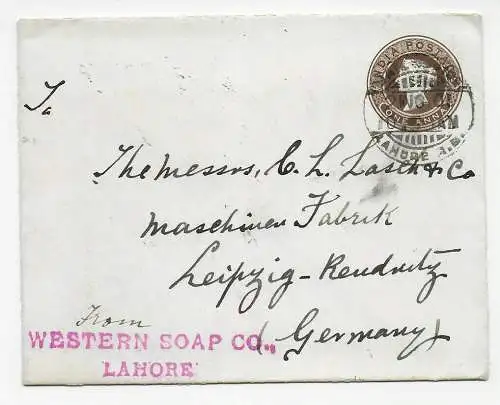 INDIA POSTAGE
ONE ANNA
LAHORE
To
The Messrs, C. L. Lasch & Co
Maschinen Fabrik
Leipzig-Reudnitz
(Germany)
From
WESTERN SOAP CO.,
LAHORE